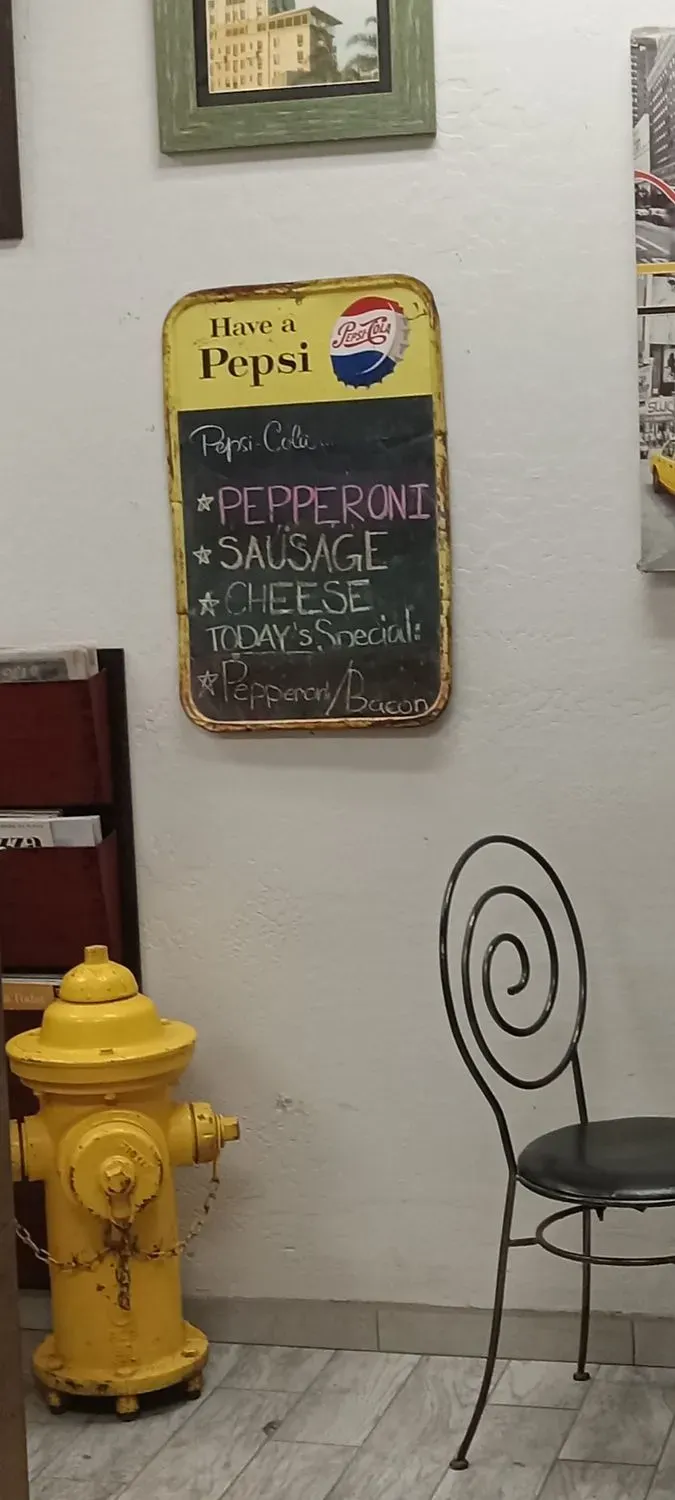 Have a
Pepsi
PEPSI-COLA
Pepsi-Cola...
☆ PEPPERONI
☆ SAUSAGE
☆ CHEESE
TODAY's Special:
☆ Pepperoni/Bacon